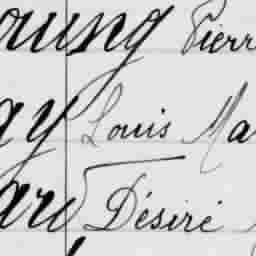 oung Pierr
ay Louis Ma
ard Désiré